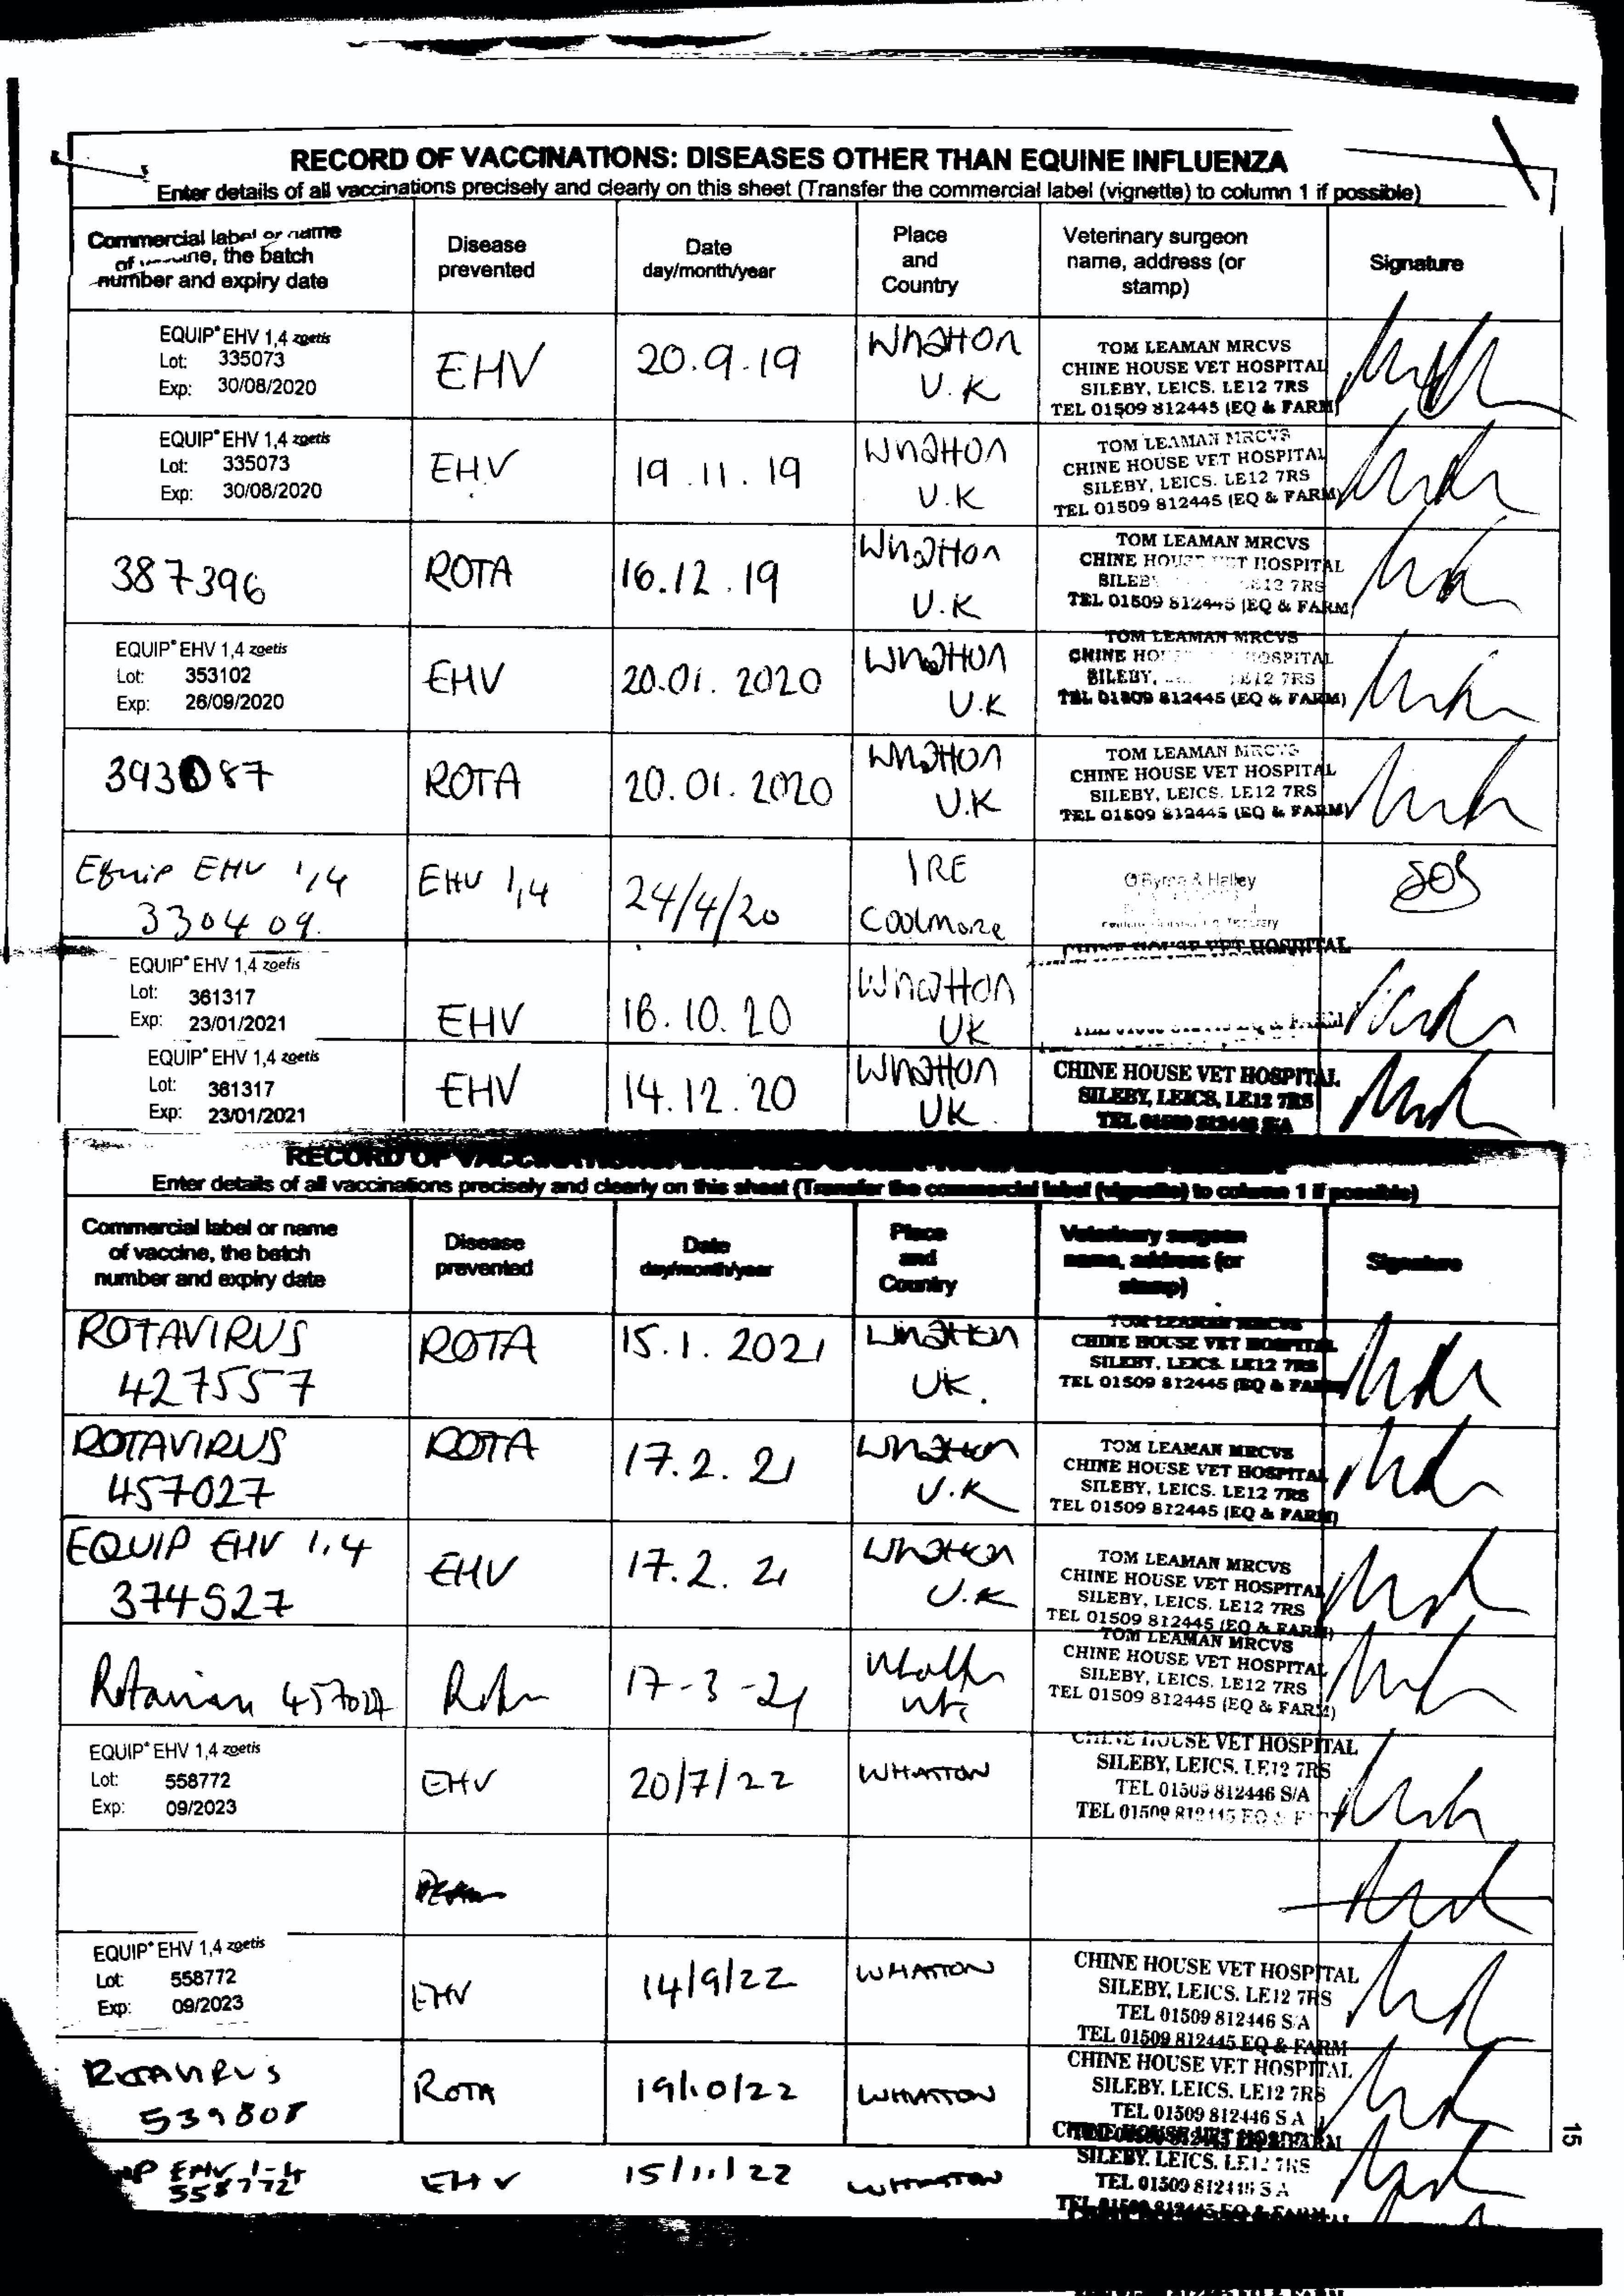 RECORD OF VACCINATIONS: DISEASES OTHER THAN EQUINE INFLUENZA
Enter details of all vaccinations precisely and clearly on this sheet (Transfer the commercial label (vignette) to column 1 if possible)
Commercial label or name of vaccine, the batch number and expiry date
Disease prevented
Date day/month/year
Place and Country
Veterinary surgeon name, address (or stamp)
Signature
EQUIP EHV 1,4 zoetis
Lot: 335073
Exp: 30/08/2020
EHV
20.9.19
Whatton
U.K
TOM LEAMAN MRCVS
CHINE HOUSE VET HOSPITAL
SILEBY, LEICS. LE12 7RS
TEL 01509 812445 (EQ & FARM)
EQUIP EHV 1,4 zoetis
Lot: 335073
Exp: 30/08/2020
EHV
19.11.19
Whatton
U.K
TOM LEAMAN MRCVS
CHINE HOUSE VET HOSPITAL
SILEBY, LEICS. LE12 7RS
TEL 01509 812445 (EQ & FARM)
387396
ROTA
16.12.19
Whatton
U.K
TOM LEAMAN MRCVS
CHINE HOUSE VET HOSPITAL
SILEBY 7RS
TEL 01509 812445 (EQ & FARM)
EQUIP EHV 1,4 zoetis
Lot: 353102
Exp: 26/09/2020
EHV
20.01.2020
Whatton
U.K
TOM LEAMAN MRCVS
CHINE HOSPITAL
SILEBY, LE12 7RS
TEL 01509 812445 (EQ & FARM)
393087
ROTA
20.01.2020
Whatton
U.K
TOM LEAMAN MRCVS
CHINE HOUSE VET HOSPITAL
SILEBY, LEICS. LE12 7RS
TEL 01509 812445 (EQ & FARM)
Equip EHV 1/4
330409.
EHV 1,4
24/4/20
IRE
Coolmore
O'Byrne & Halley
EQUIP EHV 1,4 zoetis
Lot: 361317
Exp: 23/01/2021
EHV
16.10.20
Whatton
UK
CHINE HOUSE VET HOSPITAL
EQUIP EHV 1,4 zoetis
Lot: 361317
Exp: 23/01/2021
EHV
14.12.20
Whatton
UK.
CHINE HOUSE VET HOSPITAL
SILEBY, LEICS, LE12 7RS
TEL 01509 812446 S/A
RECORD OF
Enter details of all vaccinations precisely and clearly on this sheet (Transfer the commercial label (vignette) to column 1 if possible)
Commercial label or name of vaccine, the batch number and expiry date
Disease prevented
Date day/month/year
Place and Country
Veterinary surgeon name, address (or stamp)
Signature
ROTAVIRUS
427557
ROTA
15.1.2021
Whatton
UK.
TOM LEAMAN MRCVS
CHINE HOUSE VET HOSPITAL
SILEBY, LEICS. LE12 7RS
TEL 01509 812445 (EQ & FARM)
ROTAVIRUS
457027
ROTA
17.2.21
Whatton
U.K
TOM LEAMAN MRCVS
CHINE HOUSE VET HOSPITAL
SILEBY, LEICS. LE12 7RS
TEL 01509 812445 (EQ & FARM)
EQUIP EHV 1,4
374527
EHV
17.2.21
Whatton
U.K
TOM LEAMAN MRCVS
CHINE HOUSE VET HOSPITAL
SILEBY, LEICS. LE12 7RS
TEL 01509 812445 (EQ & FARM)
457027
17-3-21
TOM LEAMAN MRCVS
CHINE HOUSE VET HOSPITAL
SILEBY, LEICS. LE12 7RS
TEL 01509 812445 (EQ & FARM)
EQUIP EHV 1,4 zoetis
Lot: 558772
Exp: 09/2023
EHV
20/7/22
WHATTON
CHINE HOUSE VET HOSPITAL
SILEBY, LEICS. LE12 7RS
TEL 01509 812446 S/A
TEL 01509 812445 EQ &
EQUIP EHV 1,4 zoetis
Lot: 558772
Exp: 09/2023
EHV
14/9/22
WHATTON
CHINE HOUSE VET HOSPITAL
SILEBY, LEICS. LE12 7RS
TEL 01509 812446 S/A
TEL 01509 812445 EQ & FARM
ROTAVIRUS
539808
ROTA
19/10/22
WHATTON
CHINE HOUSE VET HOSPITAL
SILEBY. LEICS. LE12 7RS
TEL 01509 812446 S A
15
EHV 1-4
558772
EHV
15/11/22
WHATTON
SILEBY. LEICS. LE12 7RS
TEL 01509 812446 S A
TEL 01509 812445 EQ & FARM